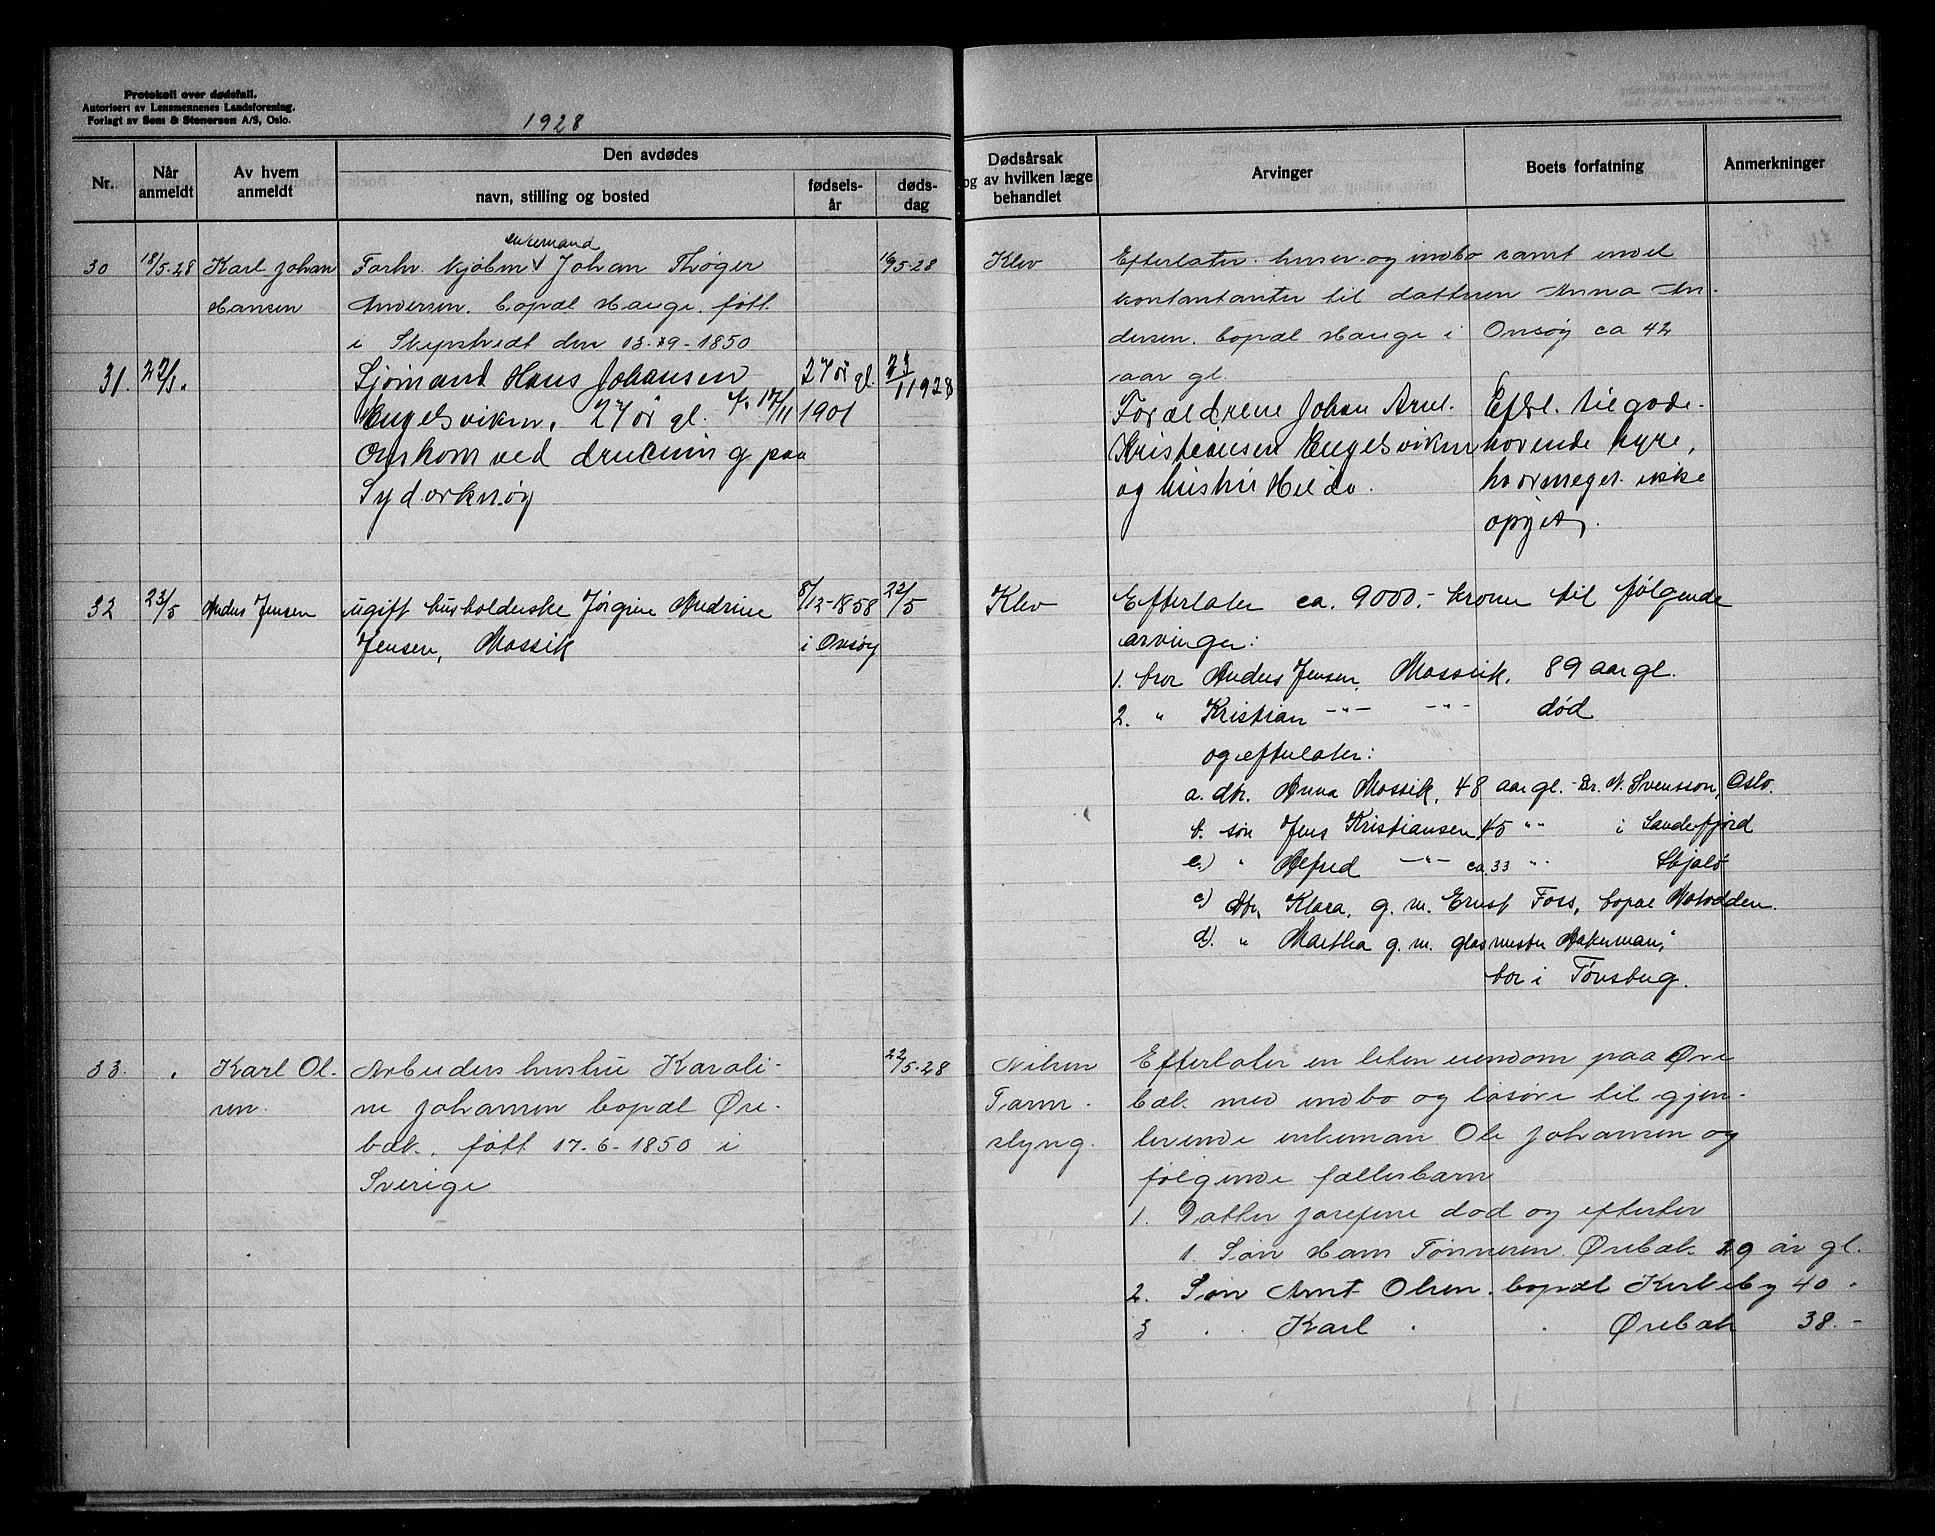 Protokoll over dødsfall.
Autorisert av Lensmennenes Landsforening.
Forlagt av Sem & Stenersen A/S, Oslo.
1928
Nr.
Når anmeldt
Av hvem anmeldt
Den avdødes
navn, stilling og bosted
fødselsår
dødsdag
Dødsårsak og av hvilken læge behandlet
Arvinger
Boets forfatning
Anmerkninger
30 18/5-28 Karl Johan
Hansen
enkemand
Forhv. kjøbm Johan Thrøger
Andersen. bopæl Hauge, født
i Skjeshvedt den 13-9-1850
19/5-28 Klev
Efterlater huser og indbo samt endel
kontantanter til datteren Anna An-
dersen. bopæl Hauge i Onsøy ca 42
aar gl.
31. 22/5.
Sjømand Hans Johansen
Engelsviken, 27 år gl. f. 17/11 1901
Omkom ved drukning paa
Syd orknøy
27 år gl.
23/1 1928
Forældrene Johan Arul.
Kristiansen Engelsviken
og hustru Hilda.
Efterl. tilgode-
havende hyre,
hvormeget ikke
opgit.
32 23/5 Anders Jensen
ugift husholderske Jørgine Andrine
Jensen, Mossik
8/12-1858
i Onsøy
22/5
Klev
Efterlater ca. 9000.- kroner til følgende
arvinger:
1. bror Anders Jensen, Mossik, 89 aar gl.
2. " Kristian -"- -"- død
og efterlater:
a. dtr. Anna Mossik, 48 aar gl. - Dr. N. Svensson, Oslo.
b. søn Jens Kristiansen 45 " i Sandefjord
c.) " Alfred -"- ca. 33 "
c) dtr. Klara, g. m. Ernst Foss, bopæl Notodden.
d). " Martha g. m. glasmester Aakerman,
bor i Tønsberg.
33. " Karl Ol-
sen
Arbeiders hustru Karoli-
ne Johansen bopæl Øre-
bæk. født 17-6-1850 i
Sverige
22/5-28
Nilsen
Tarm-
slyng.
Efterlater en liten eiendom paa Øre
bæk med indbo og løsøre til gjen-
levende enkeman Ole Johansen og
følgende fællesbarn
1. Datter Josefine død og efterler
1. Søn Hans Tønnesen Ørebæk 29 år gl.
2. Søn Arnt Olsen. bopæl Kirkeby 40 -
3 " Karl " " Ørebæk 38.-